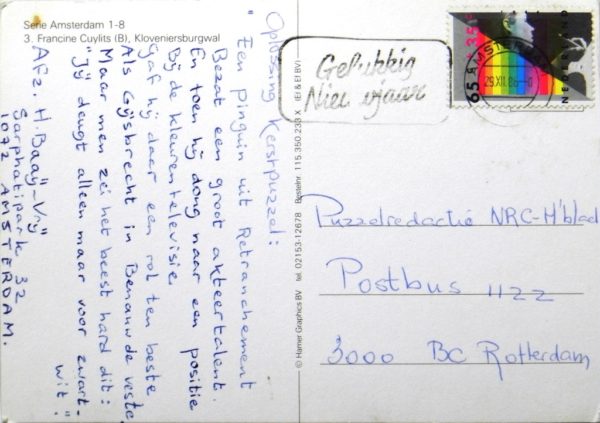 Serie Amsterdam 1-8
3. Francine Cuylits (B), Kloveniersburgwal
Oplossing Kerstpuzzel:
" Een pinguin uit Retranchement
Bezat een groot akteertalent.
En toen hij dong naar een positie
Bij de kleurentelevisie
Gaf hij daar een rol ten beste
Als Gijsbrecht in Benauwde veste
Maar men zei het beest hard dit:
"Jij deugt alleen maar voor zwart-
wit".
Afz. H. Baaÿ-Vrÿ
Sarphatipark 32
1072 AMSTERDAM.
© Hamer Graphics BV tel 02153-12678 Bestelnr 115.350.233 X (EI & EI BV)
Gelukkig
Nieuwjaar
AMSTERDAM
29.XII.86
65
35
NEDERLAND
Puzzelredactie NRC-H'blad
Postbus 1122
3000 BC Rotterdam